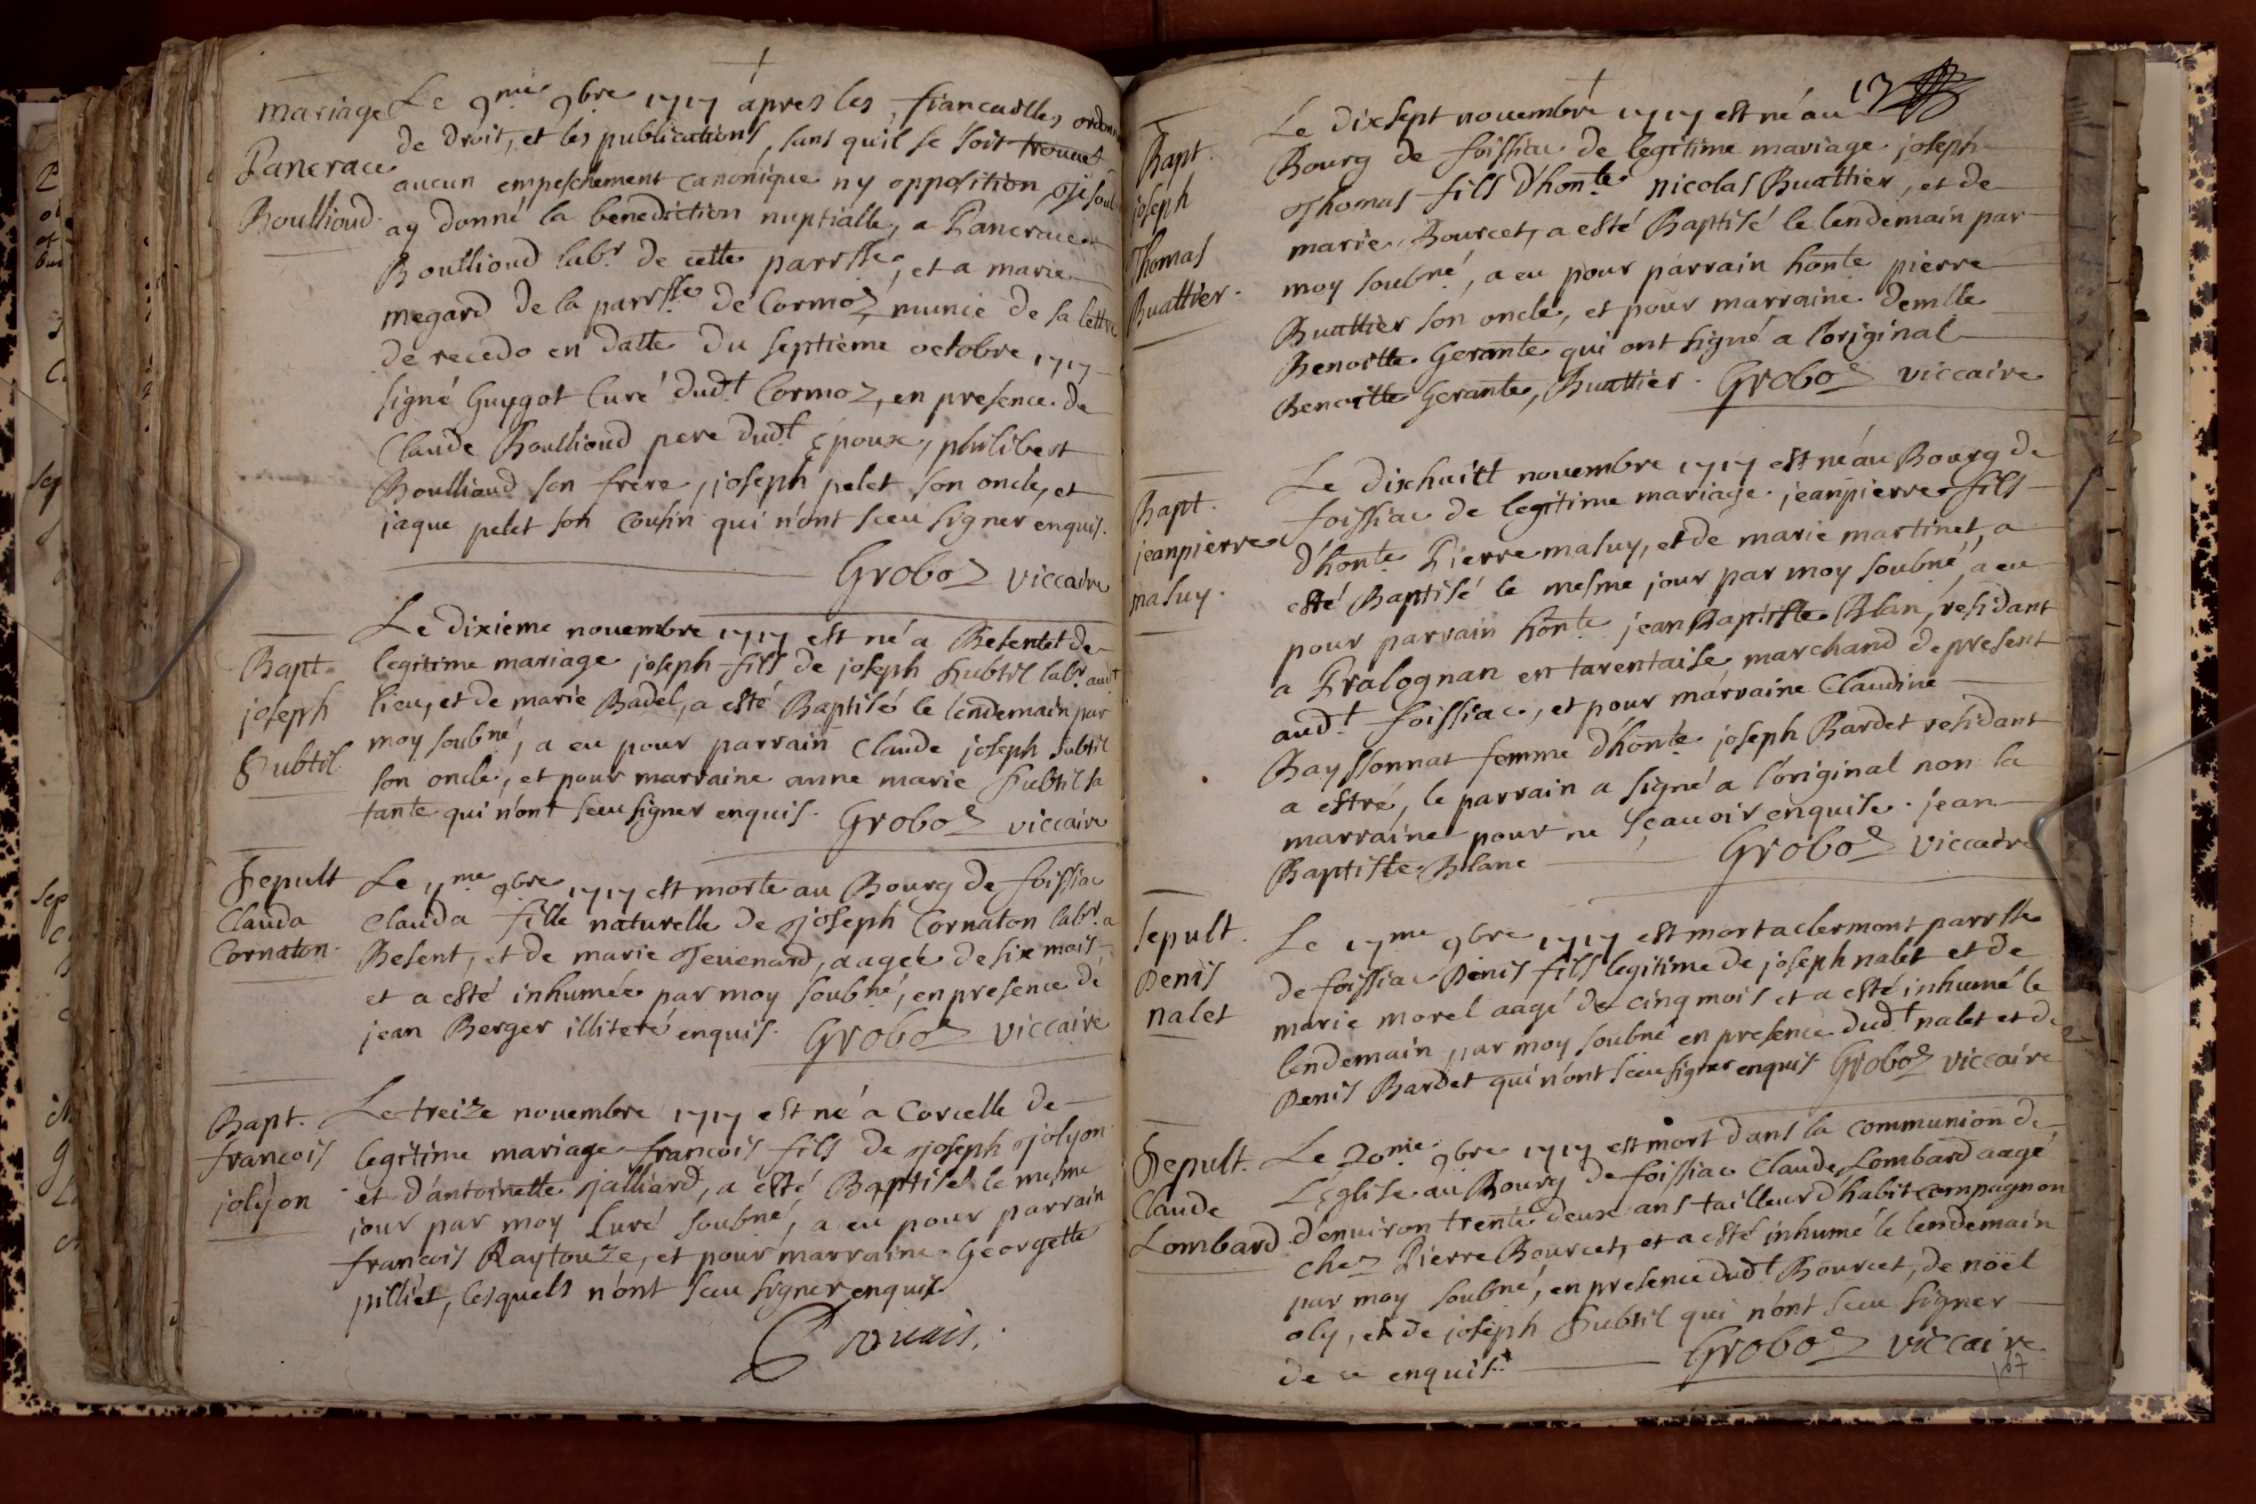 mariage
Pancrace
Boullioud.
Le 9me 9bre 1717 apres les fiancailles
de droit, et les publications, sans quil se soit trouué
aucun empeschement canonique ny opposition je
ay donné la benediction nuptialle, a Pancrace
Boullioud labr. de cette parrsse, et a marie
megard de la parrsse de Cormoz, munie de sa lettre
de recedo en datte du septieme octobre 1717
signé Guygot Curé dudt. Cormoz, en presence de
Claude Boullioud pere dudt. époux, philibert
Boullioud son frere, joseph pelet son oncle, et
jaque pelet son cousin qui n'ont sceu signer enquis.
Groboz viccaire
Bapt.
joseph
Subtil
Le dixieme nouembre 1717 est né a Besentet de
legitime mariage joseph fils de joseph Subtil labr. audt
lieu, et de marie Badel, a esté Baptisé le lendemain par
moy soubné, a eu pour parrain Claude joseph Subtil
son oncle, et pour marraine anne marie Subtil sa
tante qui n'ont sceu signer enquis. Groboz viccaire
Sepult
Clauda
Cornaton.
Le 11me 9bre 1717 est morte au Bourg de foissia
Clauda fille naturelle de joseph Cornaton labr. a
Besent, et de marie Teuenard, aagée de six mois
et a esté inhumée par moy soubné, en presence de
jean Berger illiteré enquis. Groboz viccaire
Bapt.
francois
jolyon
Le treize nouembre 1717 est né a Corcelle de
legitime mariage francois fils de joseph jolyon
et d'antoinette jalliard, a esté Baptisé le mesme
jour par moy Curé soubné, a eu pour parrain
francois Raytouze, et pour marraine Georgette
pilliet, lesquels n'ont sceu signer enquis
17
Bapt.
joseph
Thomas
Buattier.
Le dixsept nouembre 1717 est né au
Bourg de foissiac de legitime mariage joseph
Thomas fils d'honte. nicolas Buattier, et de
marie Bourcet, a esté Baptisé le lendemain par
moy soubné, a eu pour parrain honte pierre
Buattier son oncle, et pour marraine demlle
Benoitte Gerante qui ont signé a l'original
Benoitte Gerante, Buattier. Groboz viccaire
Bapt.
jeanpierre
masuy.
Le dixhuitt nouembre 1717 est né au Bourg de
foissiac de legitime mariage jeanpierre fils
d'honte. Pierre masuy, et de marie martinet, a
esté Baptisé le mesme jour par moy soubné, a eu
pour parrain honte. jean Baptiste Blan, residant
a Pralognan en tarentaise marchand de present
audt. foissiac, et pour marraine Claudine
Bayssonnat femme d'honte. joseph Bardet residant
a estré, le parrain a signé a l'original non la
marraine pour ne sçauoir enquise. jean
Baptiste Blanc Groboz viccaire
Sepult.
Denis
nalet
Le 17me 9bre 1717 est mort a clermont parrsse
de foissiac Denis fils legitime de joseph nalet et de
marie morel aagé de cinq mois et a esté inhumé le
lendemain par moy soubné en presence dudt. nalet et de
Denis Bardet qui n'ont sceu signer enquis Groboz viccaire
Sepult.
Claude
Lombard
Le 20me. 9bre 1717 est mort dans la communion de
L'Eglise au Bourg de foissiac Claude Lombard aagé
d'enuiron trente deux ans tailleur d'habit compagnon
chez Pierre Bourcet, et a esté inhumé le lendemain
par moy soubné, en presence dudt. Bourcet, de noël
oly, et de joseph Subtil qui n'ont sceu signer
de ce enquis. Groboz viccaire
167